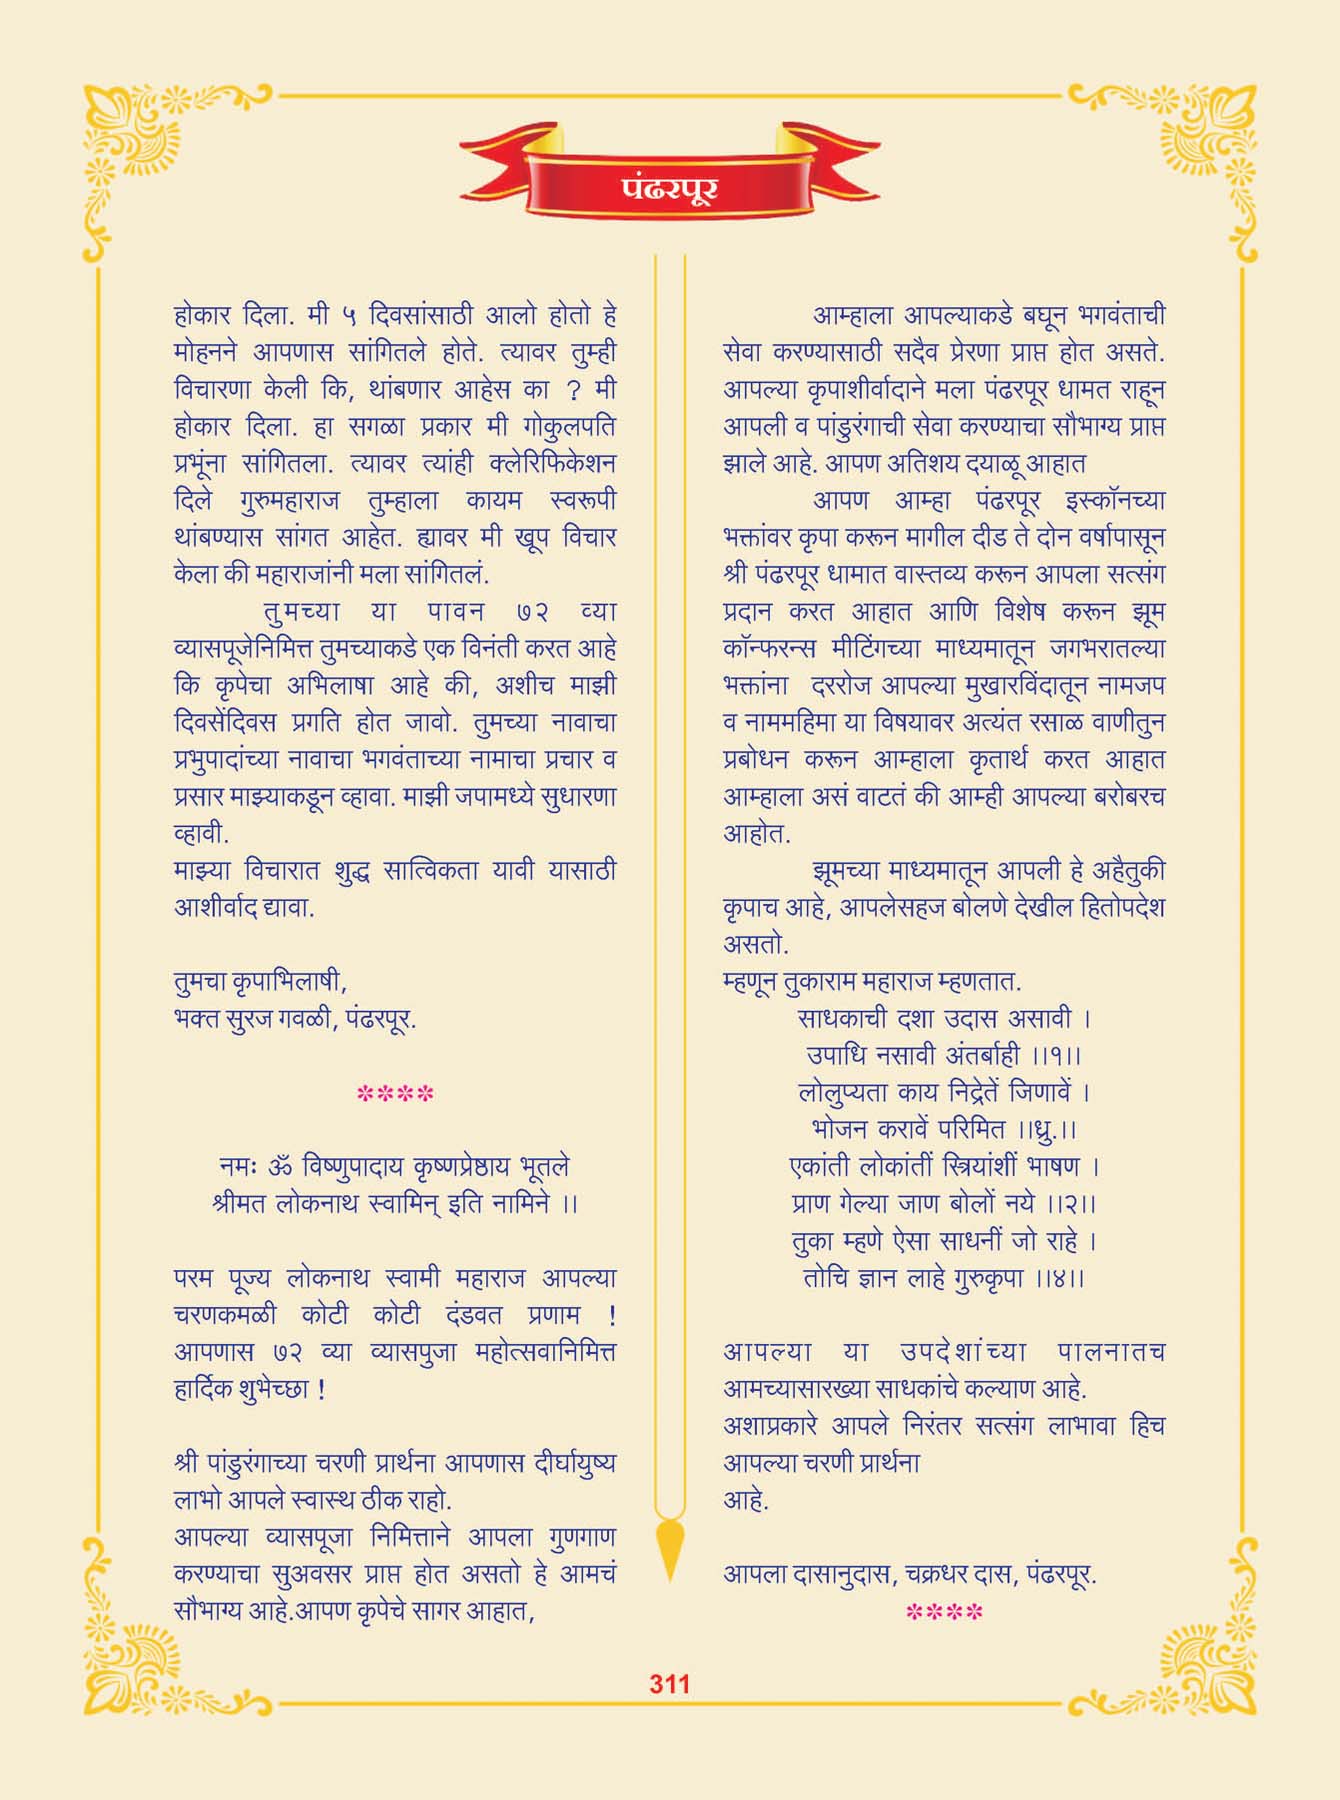 पंढरपूर
होकार दिला. मी ५ दिवसांसाठी आलो होतो हे
मोहनने आपणास सांगितले होते. त्यावर तुम्ही
विचारणा केली कि, थांबणार आहेस का ? मी
होकार दिला. हा सगळा प्रकार मी गोकुलपति
प्रभूंना सांगितला. त्यावर त्यांही क्लेरिफिकेशन
दिले गुरुमहाराज तुम्हाला कायम स्वरूपी
थांबण्यास सांगत आहेत. ह्यावर मी खूप विचार
केला की महाराजांनी मला सांगितलं.
तुमच्या या पावन ७२ व्या
व्यासपूजेनिमित्त तुमच्याकडे एक विनंती करत आहे
कि कृपेचा अभिलाषा आहे की, अशीच माझी
दिवसेंदिवस प्रगति होत जावो. तुमच्या नावाचा
प्रभुपादांच्या नावाचा भगवंताच्या नामाचा प्रचार व
प्रसार माझ्याकडून व्हावा. माझी जपामध्ये सुधारणा
व्हावी.
माझ्या विचारात शुद्ध सात्विकता यावी यासाठी
आशीर्वाद द्यावा.
तुमचा कृपाभिलाषी,
भक्त सुरज गवळी, पंढरपूर.
****
नमः ॐ विष्णुपादाय कृष्णप्रेष्ठाय भूतले
श्रीमत लोकनाथ स्वामिन् इति नामिने ।।
परम पूज्य लोकनाथ स्वामी महाराज आपल्या
चरणकमळी कोटी कोटी दंडवत प्रणाम !
आपणास ७२ व्या व्यासपुजा महोत्सवानिमित्त
हार्दिक शुभेच्छा !
श्री पांडुरंगाच्या चरणी प्रार्थना आपणास दीर्घायुष्य
लाभो आपले स्वास्थ ठीक राहो.
आपल्या व्यासपूजा निमित्ताने आपला गुणगाण
करण्याचा सुअवसर प्राप्त होत असतो हे आमचं
सौभाग्य आहे.आपण कृपेचे सागर आहात,
आम्हाला आपल्याकडे बघून भगवंताची
सेवा करण्यासाठी सदैव प्रेरणा प्राप्त होत असते.
आपल्या कृपाशीर्वादाने मला पंढरपूर धामत राहून
आपली व पांडुरंगाची सेवा करण्याचा सौभाग्य प्राप्त
झाले आहे. आपण अतिशय दयाळू आहात
आपण आम्हा पंढरपूर इस्कॉनच्या
भक्तांवर कृपा करून मागील दीड ते दोन वर्षापासून
श्री पंढरपूर धामात वास्तव्य करून आपला सत्संग
प्रदान करत आहात आणि विशेष करून झूम
कॉन्फरन्स मीटिंगच्या माध्यमातून जगभरातल्या
भक्तांना दररोज आपल्या मुखारविंदातून नामजप
व नाममहिमा या विषयावर अत्यंत रसाळ वाणीतुन
प्रबोधन करून आम्हाला कृतार्थ करत आहात
आम्हाला असं वाटतं की आम्ही आपल्या बरोबरच
आहोत.
झूमच्या माध्यमातून आपली हे अहैतुकी
कृपाच आहे, आपलेसहज बोलणे देखील हितोपदेश
असतो.
म्हणून तुकाराम महाराज म्हणतात.
साधकाची दशा उदास असावी ।
उपाधि नसावी अंतर्बाही ।।१।।
लोलुप्यता काय निद्रेतें जिणावें ।
भोजन करावें परिमित ।।ध्रु.।।
एकांती लोकांतीं स्त्रियांशीं भाषण ।
प्राण गेल्या जाण बोलों नये ।।२।।
तुका म्हणे ऐसा साधनीं जो राहे ।
तोचि ज्ञान लाहे गुरुकृपा ।।४।।
आपल्या या उपदेशांच्या पालनातच
आमच्यासारख्या साधकांचे कल्याण आहे.
अशाप्रकारे आपले निरंतर सत्संग लाभावा हिच
आपल्या चरणी प्रार्थना
आहे.
आपला दासानुदास, चक्रधर दास, पंढरपूर.
****
311